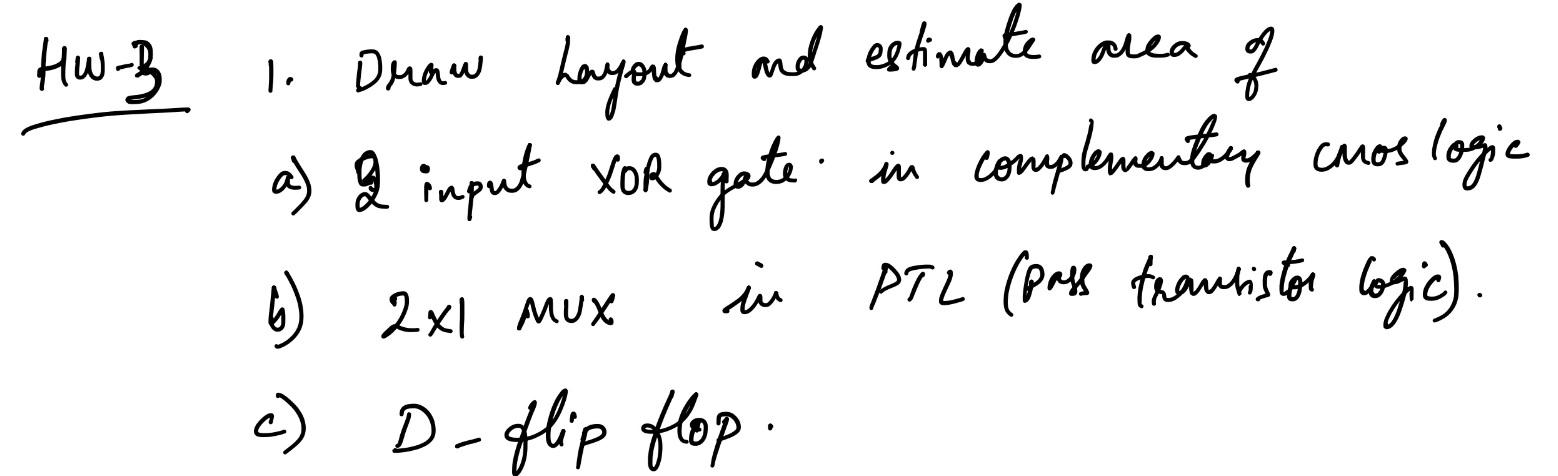 HW-3 1. Draw Layout and estimate area of
a) 2 input XOR gate in complementary cmos logic
b) 2x1 MUX in PTL (pass transistor logic).
c) D-flip flop.